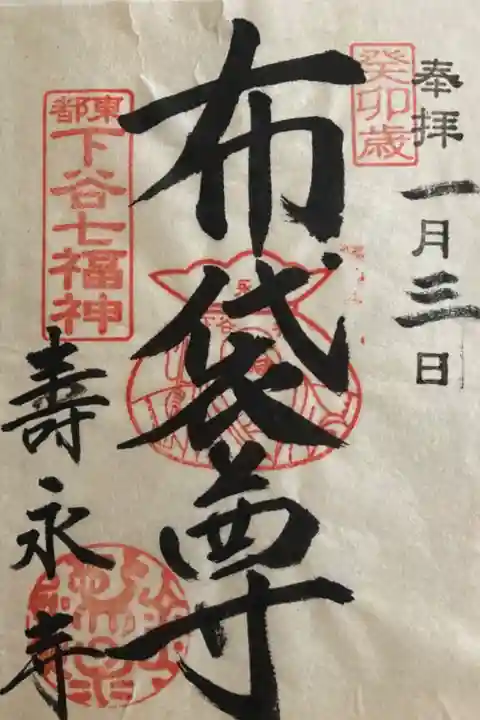 奉拝
一月三日
癸卯歳
布袋尊
東都
下谷七福神
壽永寺